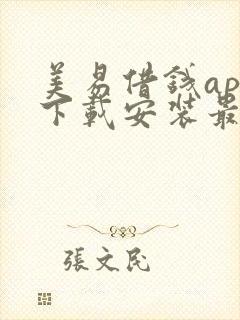 美易借錢ap
下載安裝最
張文民